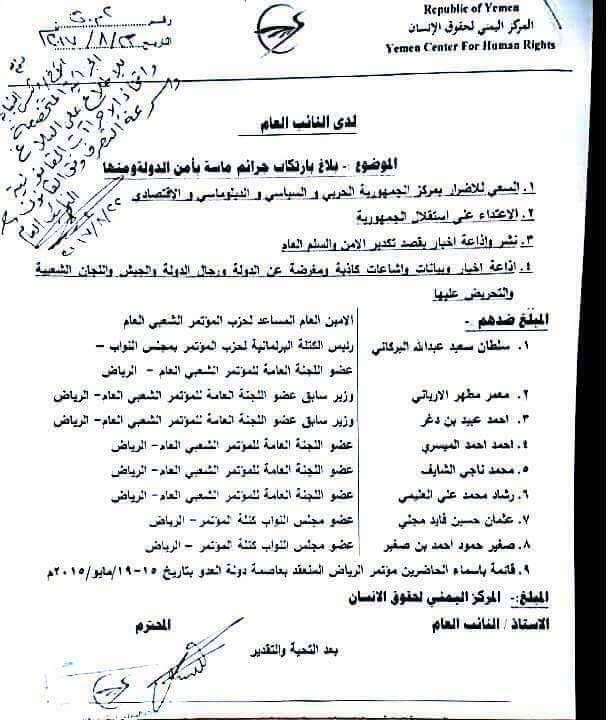 Republic of Yemen
المركز اليمني لحقوق الإنسان
Yemen Center For Human Rights
رقم
التاريخ ٢٠١٧/٨/٢٢
لدى النائب العام
الموضوع :- بلاغ بارتكاب جرائم ماسة بأمن الدولة ومنها
١. السعي للاضرار بمركز الجمهورية الحربي و السياسي و الدبلوماسي و الاقتصادي
٢. الإعتداء على استقلال الجمهورية
٣. نشر وإذاعة اخبار بقصد تكدير الامن والسلم العام
٤. إذاعة اخبار وبيانات واشاعات كاذبة ومغرضة عن الدولة ورجال الدولة والجيش واللجان الشعبية
والتحريض عليها
المبلغ ضدهم :-
١. سلطان سعيد عبدالله البركاني الامين العام المساعد لحزب المؤتمر الشعبي العام
رئيس الكتلة البرلمانية لحزب المؤتمر بمجلس النواب –
عضو اللجنة العامة للمؤتمر الشعبي العام – الرياض
٢. معمر مطهر الارياني وزير سابق عضو اللجنة العامة للمؤتمر الشعبي العام– الرياض
٣. احمد عبيد بن دغر وزير سابق عضو اللجنة العامة للمؤتمر الشعبي العام– الرياض
٤. احمد احمد الميسري عضو اللجنة العامة للمؤتمر الشعبي العام– الرياض
٥. محمد ناجي الشايف عضو اللجنة العامة للمؤتمر الشعبي العام– الرياض
٦. رشاد محمد علي العليمي عضو اللجنة العامة للمؤتمر الشعبي العام– الرياض
٧. عثمان حسين فايد مجلي عضو مجلس النواب كتلة المؤتمر– الرياض
٨. صغير حمود احمد بن صغير عضو مجلس النواب كتلة المؤتمر – الرياض
٩. قائمة باسماء الحاضرين مؤتمر الرياض المنعقد بعاصمة دولة العدو بتاريخ ١٥-١٩/مايو/٢٠١٥م
المبلغ:- المركز اليمني لحقوق الانسان
الاستاذ / النائب العام المحترم
بعد التحية والتقدير